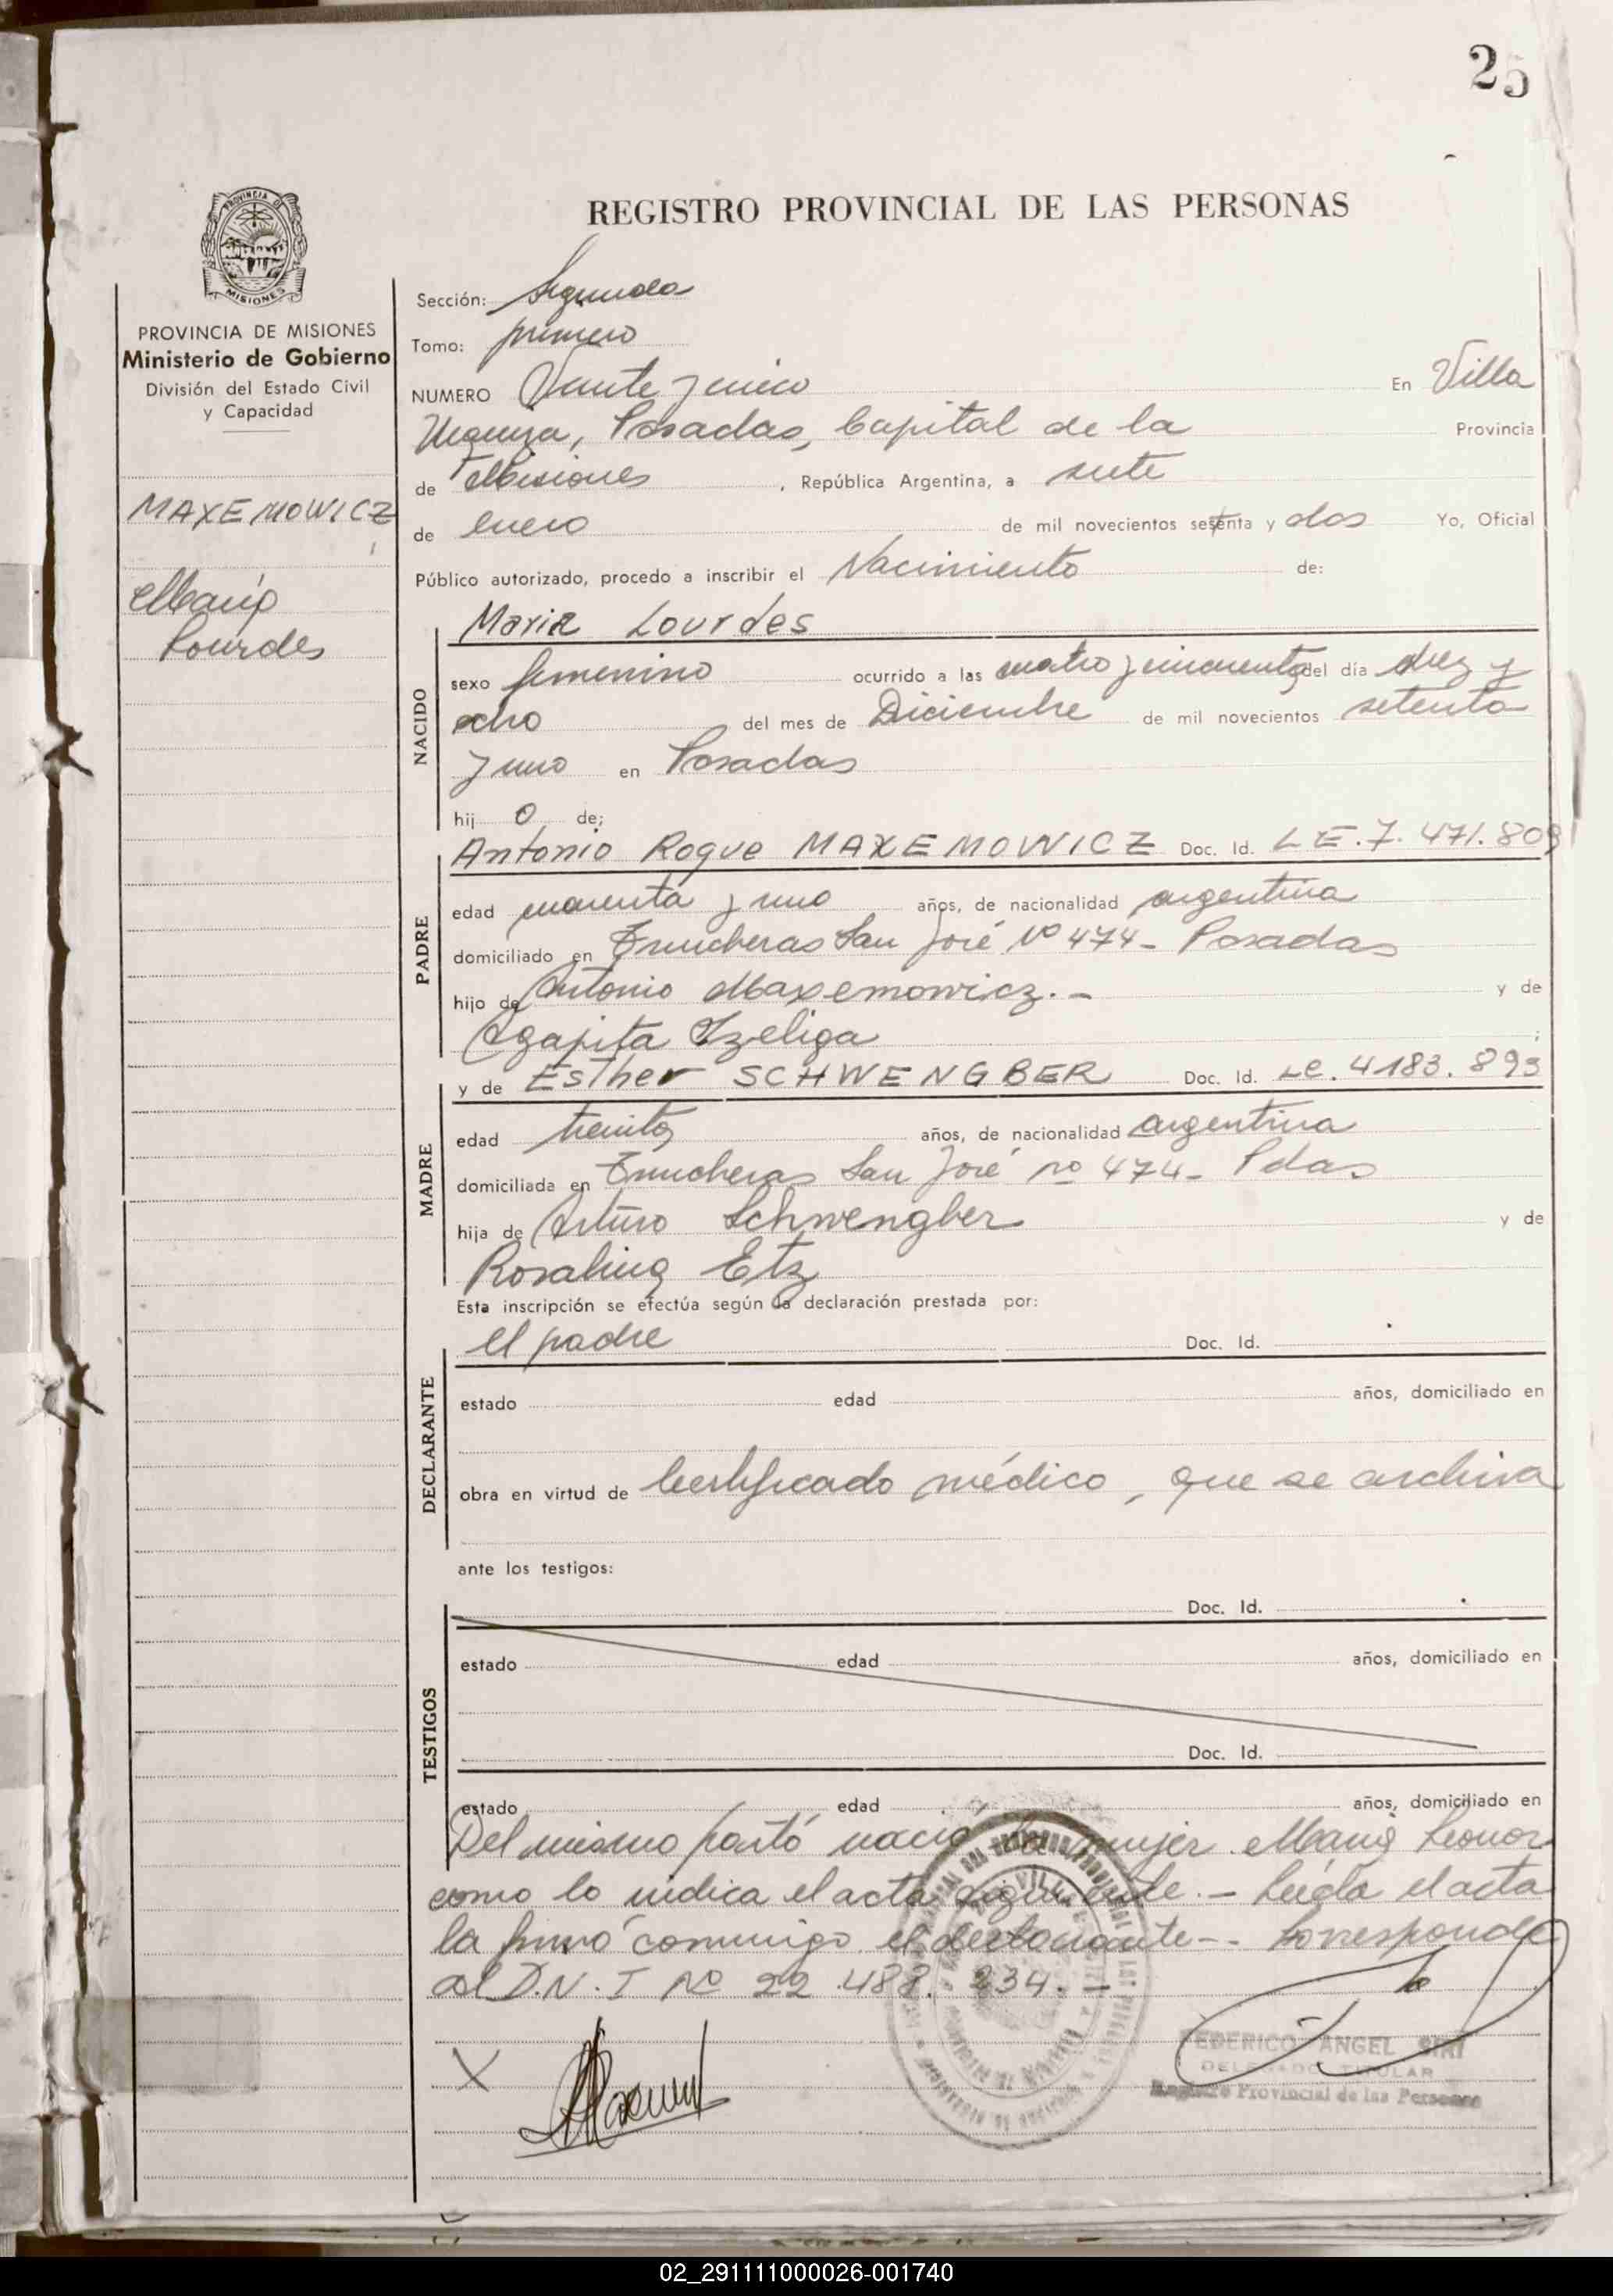 25
REGISTRO PROVINCIAL DE LAS PERSONAS
PROVINCIA DE MISIONES
PROVINCIA DE MISIONES
Ministerio de Gobierno
División del Estado Civil
y Capacidad
MAXEMOWICZ
María
Lourdes
Sección: Segunda
Tomo: primero
NUMERO Veinte y cinco En Villa
Urquiza, Posadas, Capital de la Provincia
de Misiones, República Argentina, a siete
de enero de mil novecientos setenta y dos Yo, Oficial
Público autorizado, procedo a inscribir el Nacimiento de:
NACIDO
Maria Lourdes
sexo femenino ocurrido a las cuatro y cincuenta del día diez y
ocho del mes de Diciembre de mil novecientos setenta
y uno en Posadas
hij o de;
PADRE
Antonio Roque MAXEMOWICZ Doc. Id. LE. 7. 471. 809
edad cuarenta y uno años, de nacionalidad argentina
domiciliado en Trincheras San José Nº 474- Posadas
hijo de Antonio Maxemowicz. - y de
Agapita Szeliga ;
MADRE
y de Esther SCHWENGBER Doc. Id. LC. 4183. 893
edad treinta años, de nacionalidad argentina
domiciliada en Trincheras San José nº 474- Pdas
hija de Arturo Schwengber y de
Rosalina Etz
Esta inscripción se efectúa según la declaración prestada por:
DECLARANTE
el padre Doc. Id.
estado edad años, domiciliado en
obra en virtud de Certificado médico, que se archiva
ante los testigos:
TESTIGOS
Doc. Id.
estado edad años, domiciliado en
Doc. Id.
estado edad años, domiciliado en
Del mismo partó nació la mujer María Leonor
como lo indica el acta siguiente. - Leída el acta
la firmó conmigo el declarante-. Corresponde
al D.N.I Nº 22.488.234. -
FEDERICO ANGEL SIRI
DELEGADO TITULAR
Registro Provincial de las Personas
02_291111000026-001740